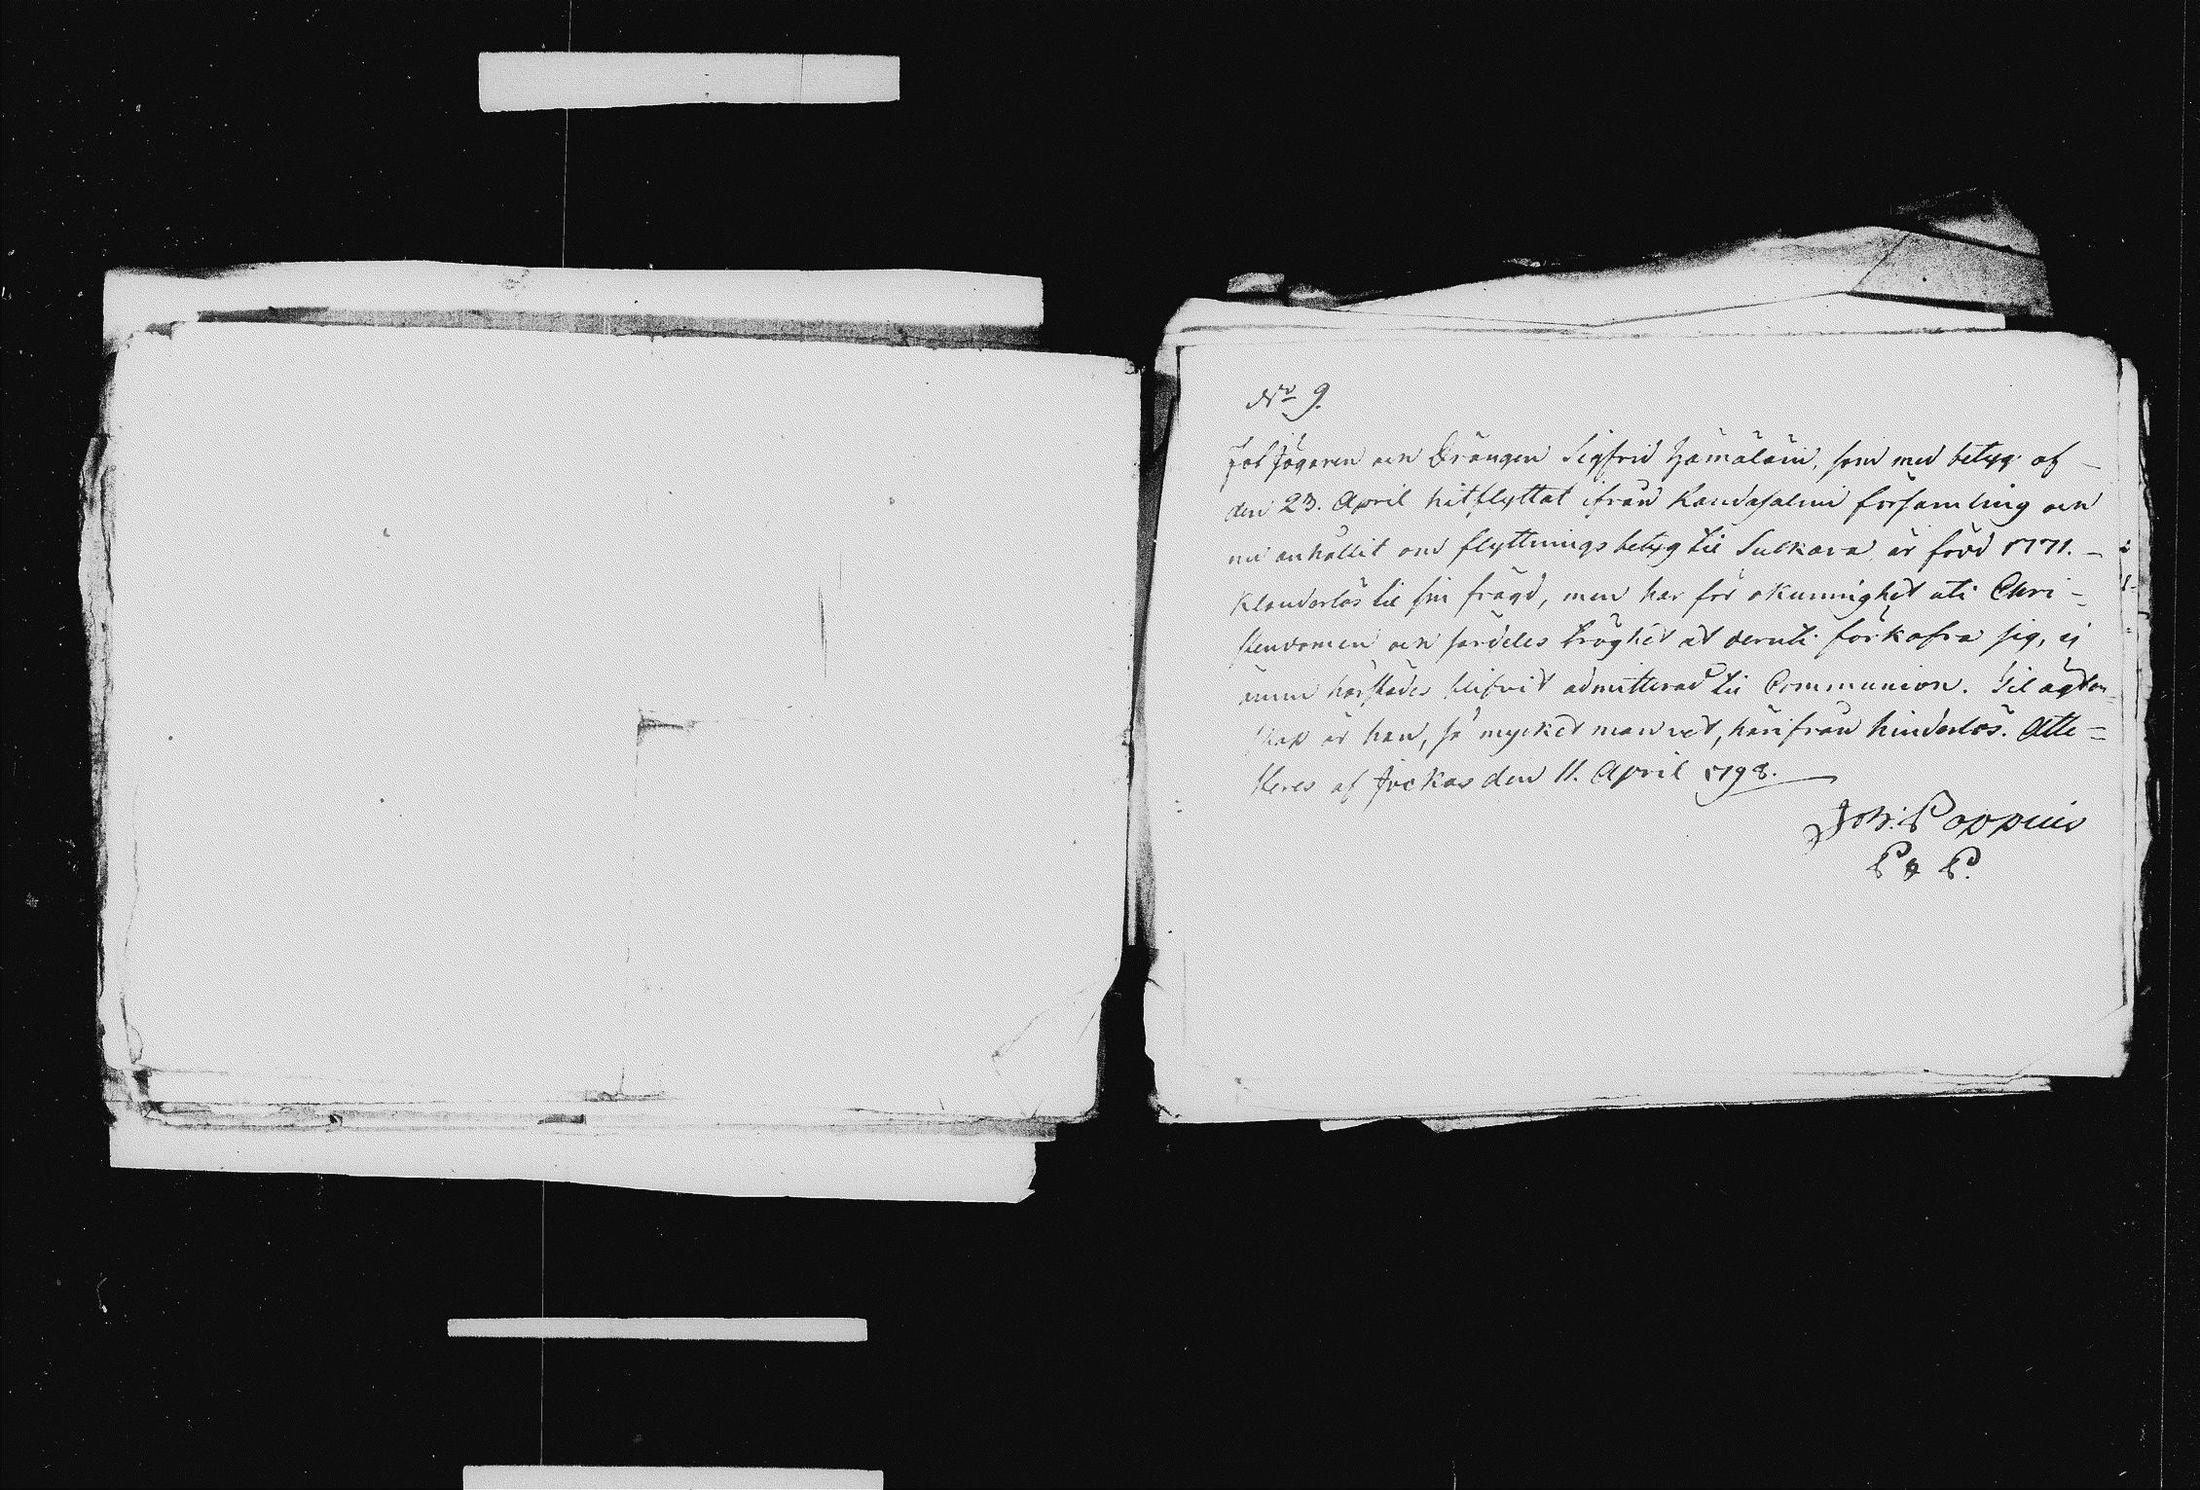 No 9.
Försfögaren och Drängen Sigfrid Hämäläin, som med betyg af
den 23. April hitflyttat ifrån Randasalmi församling och
nu anhållit om flyttningsbetyg til Sulkava, är född 1771. —
Klanderlös til sin frägd, men har för okunnighet uti Chri=
stendomen och särdeles tröghet at deruti förkofra sig, ej
ännu härstädes blifvit admitterad til Communion. Til ägten
skap är han, så mycket man vet, härifrån hinderlös. Atte=
steres af Jockas den 11. April 1798.
Joh: Poppius
P & P.